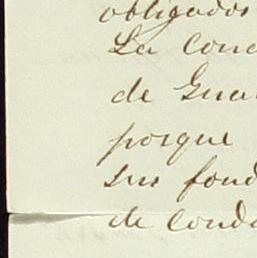 obligados
La conc
de Gua
porque
sus fond
de cond